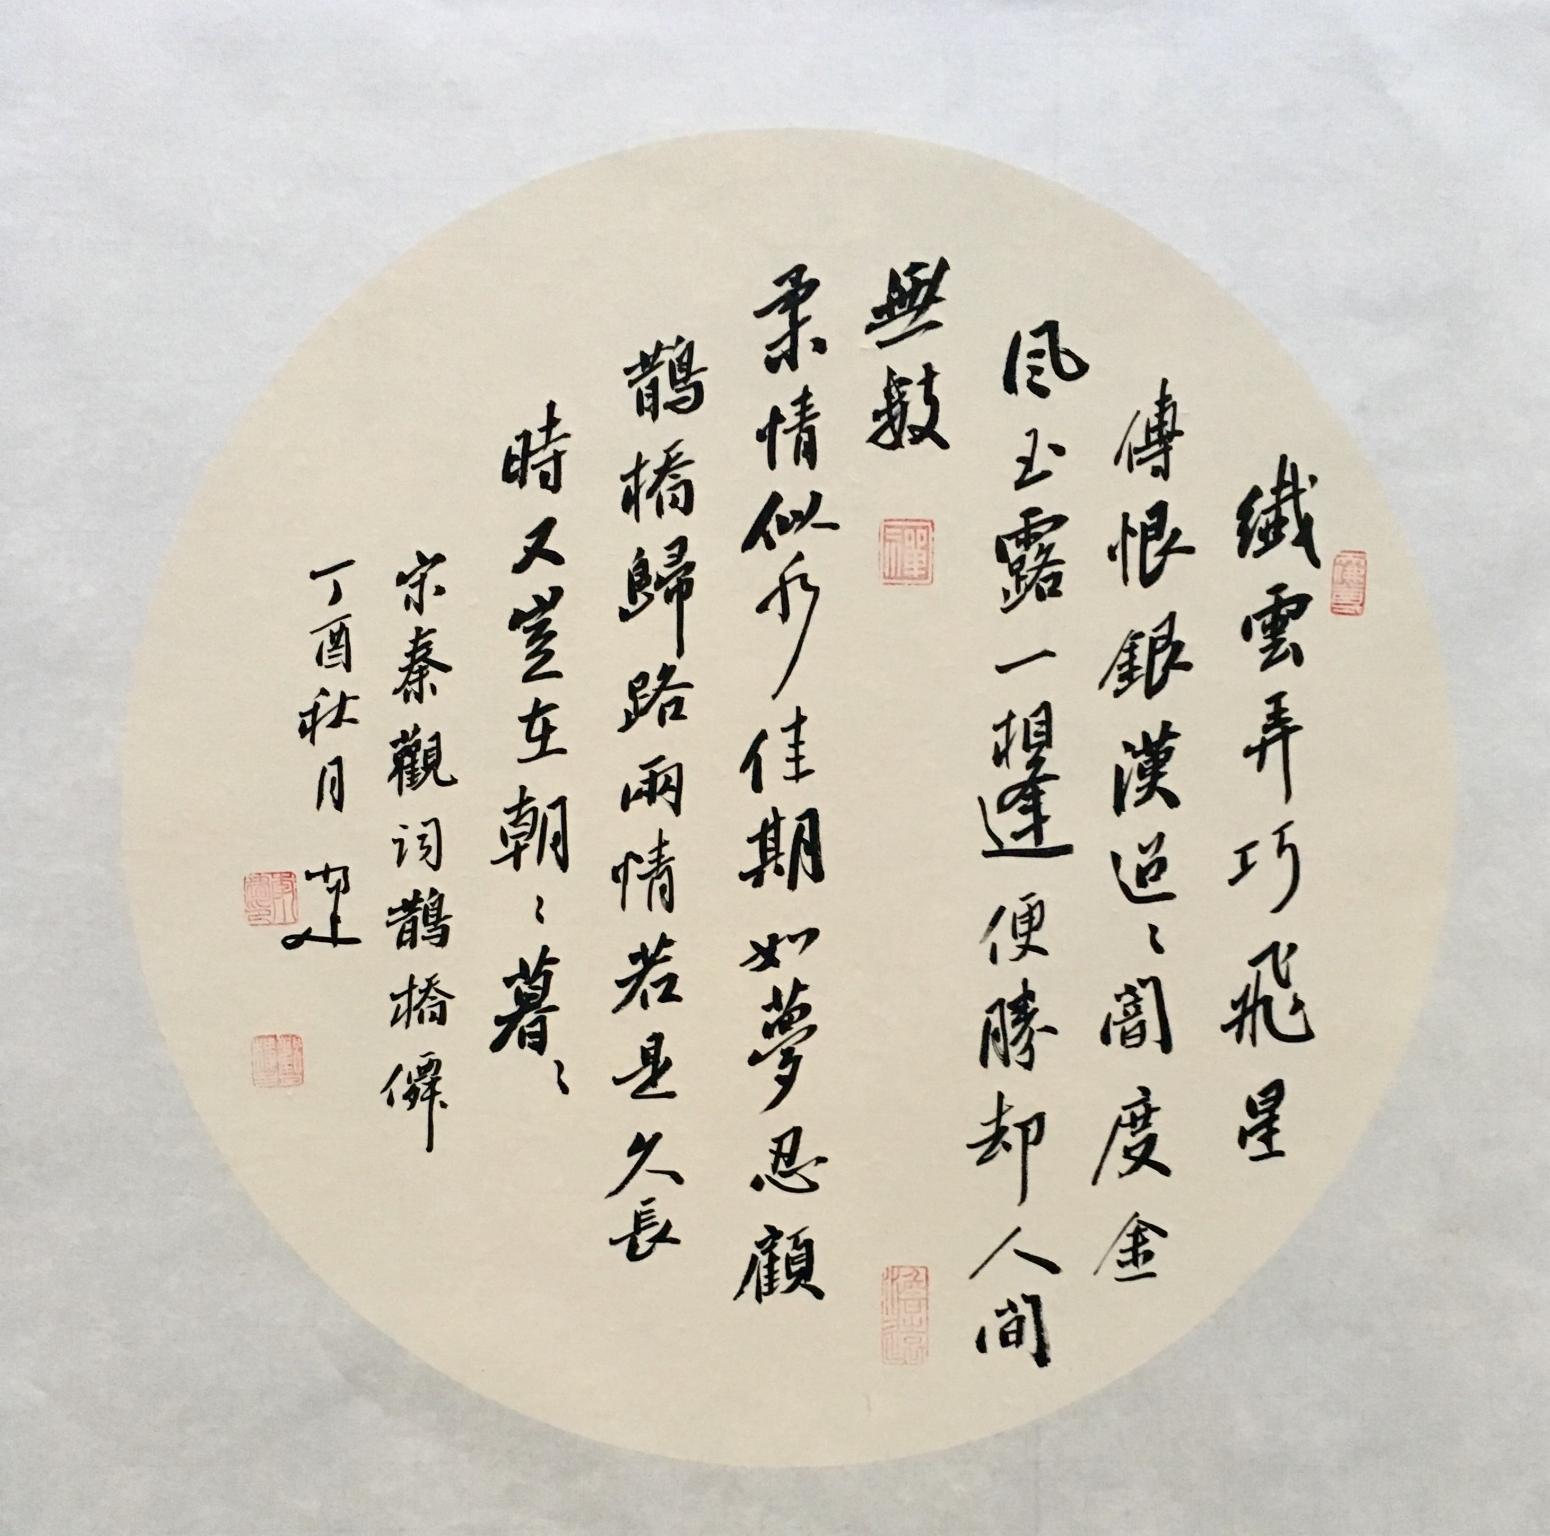 纖雲弄巧飛星
傳恨銀漢迢〻闇度金
風玉露一相逢便勝却人間
無數
柔情似水佳期如夢忍顧
鵲橋歸路兩情若是久長
時又豈在朝〻暮〻
宋秦觀词鵲橋僊
丁酉秋月